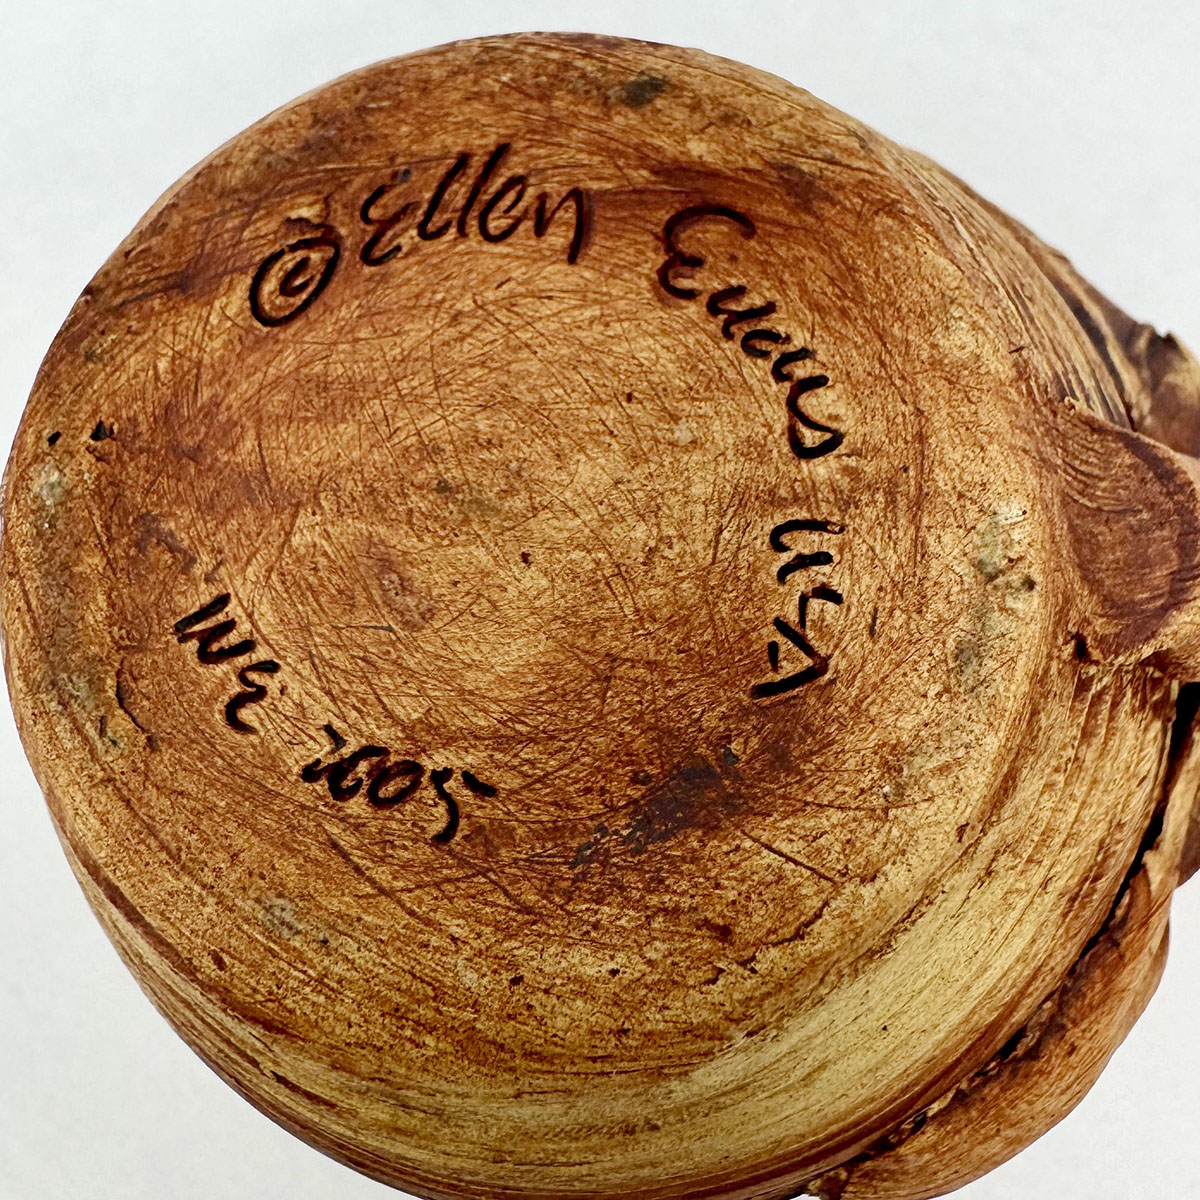 © Ellen Evans USA
WI 2005